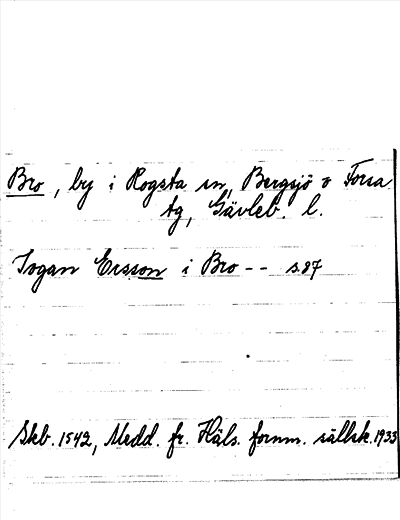 Bro, by i Rogsta sn, Bergsjö o Forsa
tg, Gävleb. l.
Jogan Ersson i Bro -- s. 87
Skb. 1542, Medd. fr. Häls. fornm. sällsk. 1933